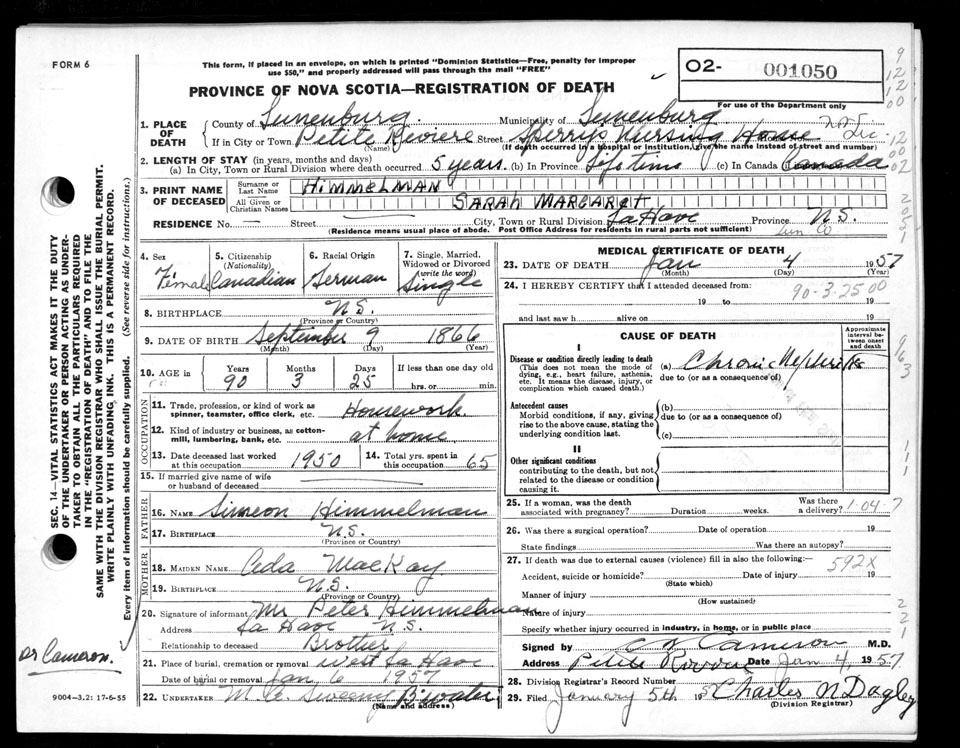 FORM 6
This form, if placed in an envelope, on which is printed "Dominion Statistics—Free, penalty for improper
use $50," and properly addressed will pass through the mail "FREE"
PROVINCE OF NOVA SCOTIA—REGISTRATION OF DEATH
O2- 001050
For use of the Department only
1. PLACE OF DEATH County of Lunenburg Municipality of Lunenburg
If in City or Town Petite Riviere Street Sperry's Nursing Home
(Name) (If death occurred in a hospital or Institution, give the name instead of street and number)
2. LENGTH OF STAY (in years, months and days)
(a) In City, Town or Rural Division where death occurred 5 years. (b) In Province Lifetime (c) In Canada Canada
3. PRINT NAME OF DECEASED Surname or Last Name HIMMELMAN
All Given or Christian Names SARAH MARGARET
RESIDENCE No. — Street City, Town or Rural Division LaHave Province N.S.
(Residence means usual place of abode. Post Office Address for residents in rural parts not sufficient) Lun Co
4. Sex Female
5. Citizenship (Nationality) Canadian
6. Racial Origin German
7. Single, Married, Widowed or Divorced (write the word) Single
8. BIRTHPLACE N.S.
(Province or Country)
9. DATE OF BIRTH September 9 1866
(Month) (Day) (Year)
10. AGE in Years 90 Months 3 Days 25 If less than one day old hrs. or min.
OCCUPATION
11. Trade, profession, or kind of work as spinner, teamster, office clerk, etc. Housework
12. Kind of industry or business, as cotton-mill, lumbering, bank, etc. at home
13. Date deceased last worked at this occupation 1950
14. Total yrs. spent in this occupation 65
15. If married give name of wife or husband of deceased
FATHER
16. NAME Simeon Himmelman
17. BIRTHPLACE N.S.
(Province or Country)
MOTHER
18. MAIDEN NAME Ada MacKay
19. BIRTHPLACE N.S.
(Province or Country)
20. Signature of informant Mr Peter Himmelman
Address La Have N.S.
Relationship to deceased Brother
21. Place of burial, cremation or removal West La Have
Date of burial or removal Jan 6 1957
22. UNDERTAKER M. C. Sweeny B'water
(Name and address)
MEDICAL CERTIFICATE OF DEATH
23. DATE OF DEATH Jan 4 1957
(Month) (Day) (Year)
24. I HEREBY CERTIFY that I attended deceased from: 90-3.25 00
19 to 19
and last saw h alive on 19
CAUSE OF DEATH
Approximate interval between onset and death
I
Disease or condition directly leading to death
(This does not mean the mode of dying, e.g., heart failure, asthenia, etc. It means the disease, injury, or complication which caused death.)
(a) Chronic Nephritis
due to (or as a consequence of)
Antecedent causes
Morbid conditions, if any, giving rise to the above cause, stating the underlying condition last.
(b)
due to (or as a consequence of)
(c)
II
Other significant conditions
contributing to the death, but not related to the disease or condition causing it.
25. If a woman, was the death associated with pregnancy? Duration weeks. Was there a delivery? 1-04 7
26. Was there a surgical operation? Date of operation 19
State findings Was there an autopsy?
27. If death was due to external causes (violence) fill in also the following:—
592X
Accident, suicide or homicide? Date of injury 19
(State which)
Manner of injury
(How sustained)
Nature of injury
Specify whether injury occurred in industry, in home, or in public place
Signed by C K Cameron M.D.
Address Petite Riviere Date Jan 4, 1957
28. Division Registrar's Record Number
29. Filed January 5th 195 Charles N Dagley
(Division Registrar)
SEC. 14—VITAL STATISTICS ACT MAKES IT THE DUTY
OF THE UNDERTAKER OR PERSON ACTING AS UNDER-
TAKER TO OBTAIN ALL THE PARTICULARS REQUIRED
IN THE "REGISTRATION OF DEATH" AND TO FILE THE
SAME WITH THE DIVISION REGISTRAR WHO SHALL ISSUE THE BURIAL PERMIT.
WRITE PLAINLY WITH UNFADING INK. THIS IS A PERMANENT RECORD.
Every item of information should be carefully supplied. (See reverse side for instructions.)
Dr Cameron.
9004-3.2: 17-6-55